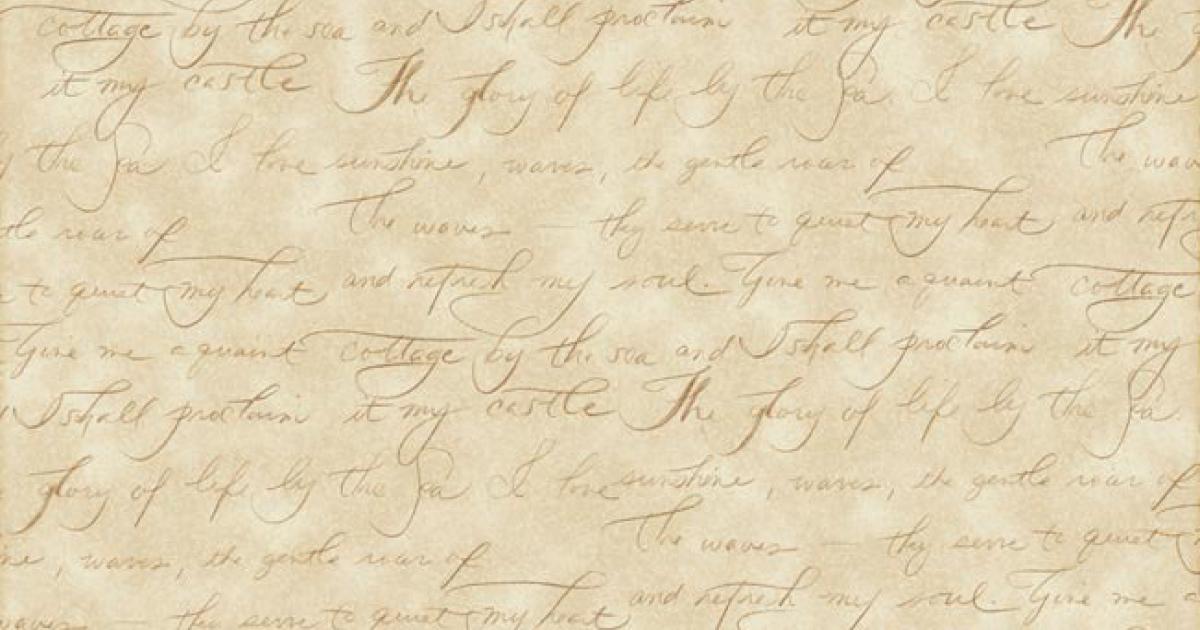 cottage by the sea and I shall proclaim it my castle The
it my castle The glory of life by the Sea. I love sunshine
the Sea I love sunshine, waves, the gentle roar of The waves
roar of The waves — they serve to quiet my heart and refresh
to quiet my heart and refresh my soul. Give me a quaint cottage
Give me a quaint cottage by the sea and I shall proclaim it my
I shall proclaim it my castle The glory of life by the Sea.
glory of life by the Sea I love sunshine, waves, the gentle roar of
, waves, the gentle roar of The waves — they serve to quiet
waves they serve to quiet my heart and refresh my soul. Give me a